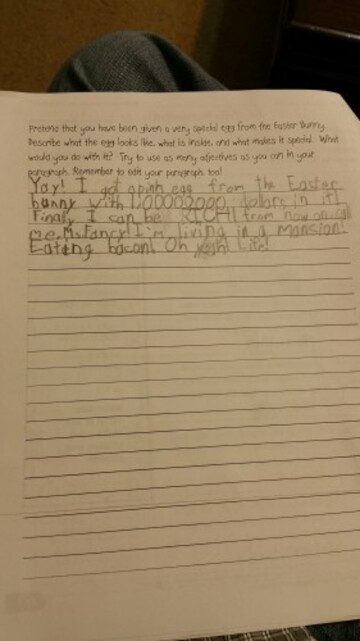 Pretend that you have been given a very special egg from the Easter Bunny.
Describe what the egg looks like, what is inside, and what makes it special. What
would you do with it? Try to use as many adjectives as you can in your
paragraph. Remember to edit your paragraph, too!
Yay! I got a pink egg from the Easter
bunny with 1,00000000 dollars in it!
Finally I can be RICH! from now on call
me, Ms. Fancy! I'm living in a mansion!
Eating bacon! Oh yeah! Life!